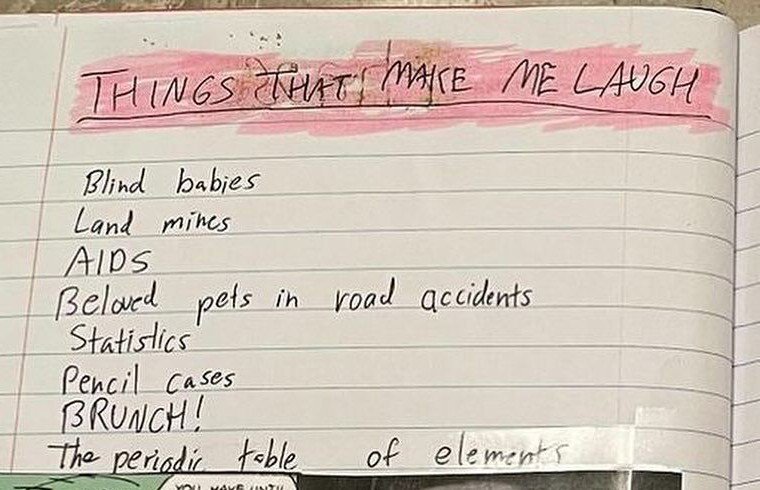 THINGS THAT MAKE ME LAUGH
Blind babies
Land mines
AIDS
Beloved pets in road accidents
Statistics
Pencil cases
BRUNCH!
The periodic table of elements
YOU HAVE UNTIL